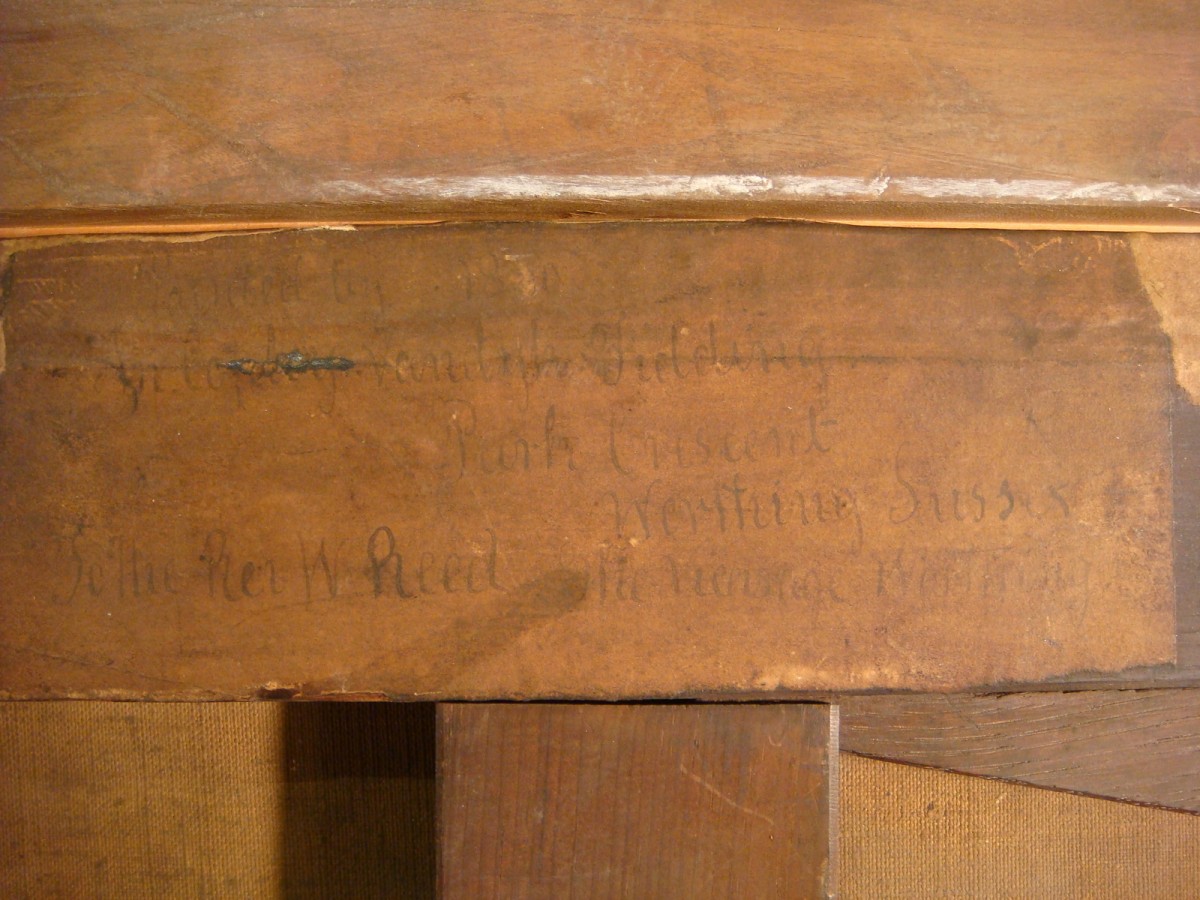 Painted by
Copley Vandyke Fielding
Park Crescent
Worthing Sussex
To The Rev W Reed The Vicarage Worthing